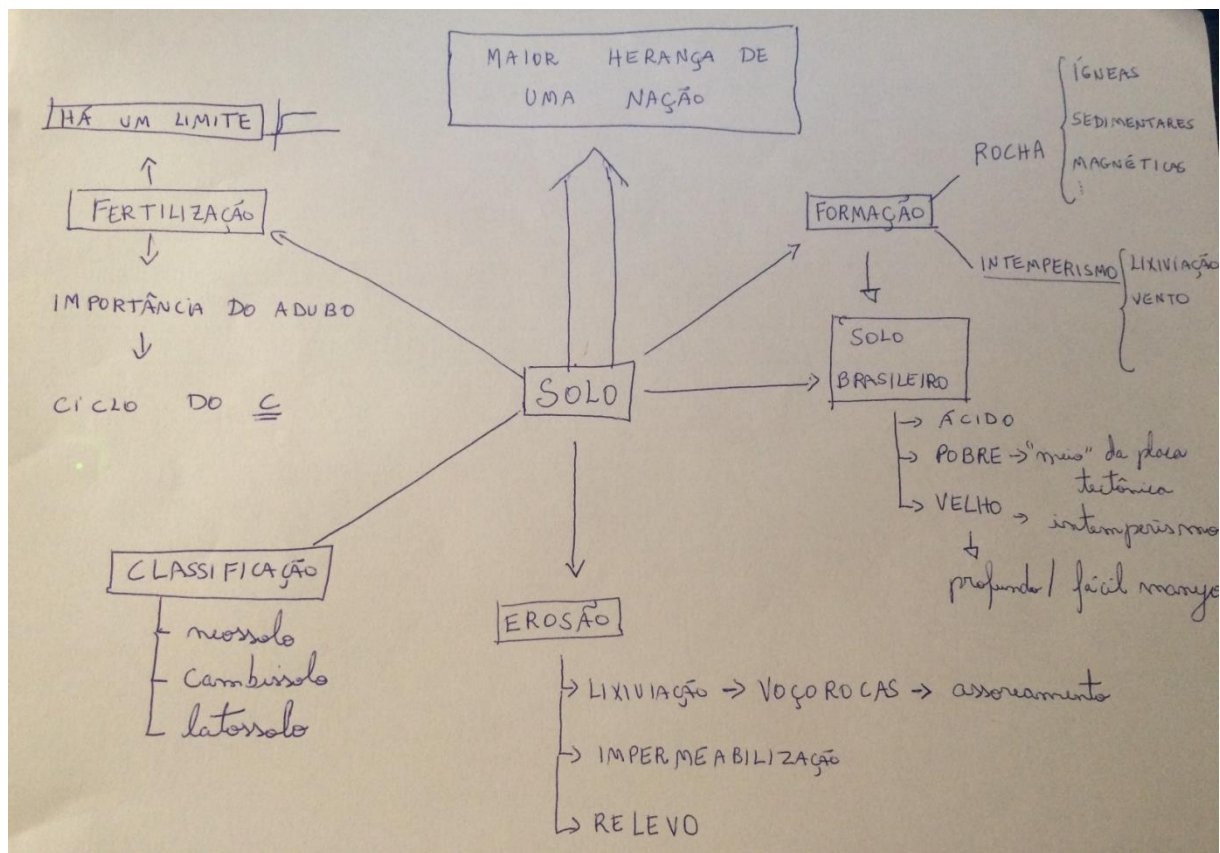 MAIOR HERANÇA DE
UMA NAÇÃO
HÁ UM LIMITE
FERTILIZAÇÃO
IMPORTÂNCIA DO ADUBO
CICLO DO C
SOLO
FORMAÇÃO
ROCHA
ÍGNEAS
SEDIMENTARES
MAGNÉTICAS
INTEMPERISMO
LIXIVIAÇÃO
VENTO
SOLO
BRASILEIRO
ÁCIDO
POBRE → "meio" da placa
tectônica
VELHO → intemperismo
profundo / fácil manejo
CLASSIFICAÇÃO
neossolo
Cambissolo
latossolo
EROSÃO
LIXIVIAÇÃO → VOÇOROCAS → assoreamento
IMPERMEABILIZAÇÃO
RELEVO